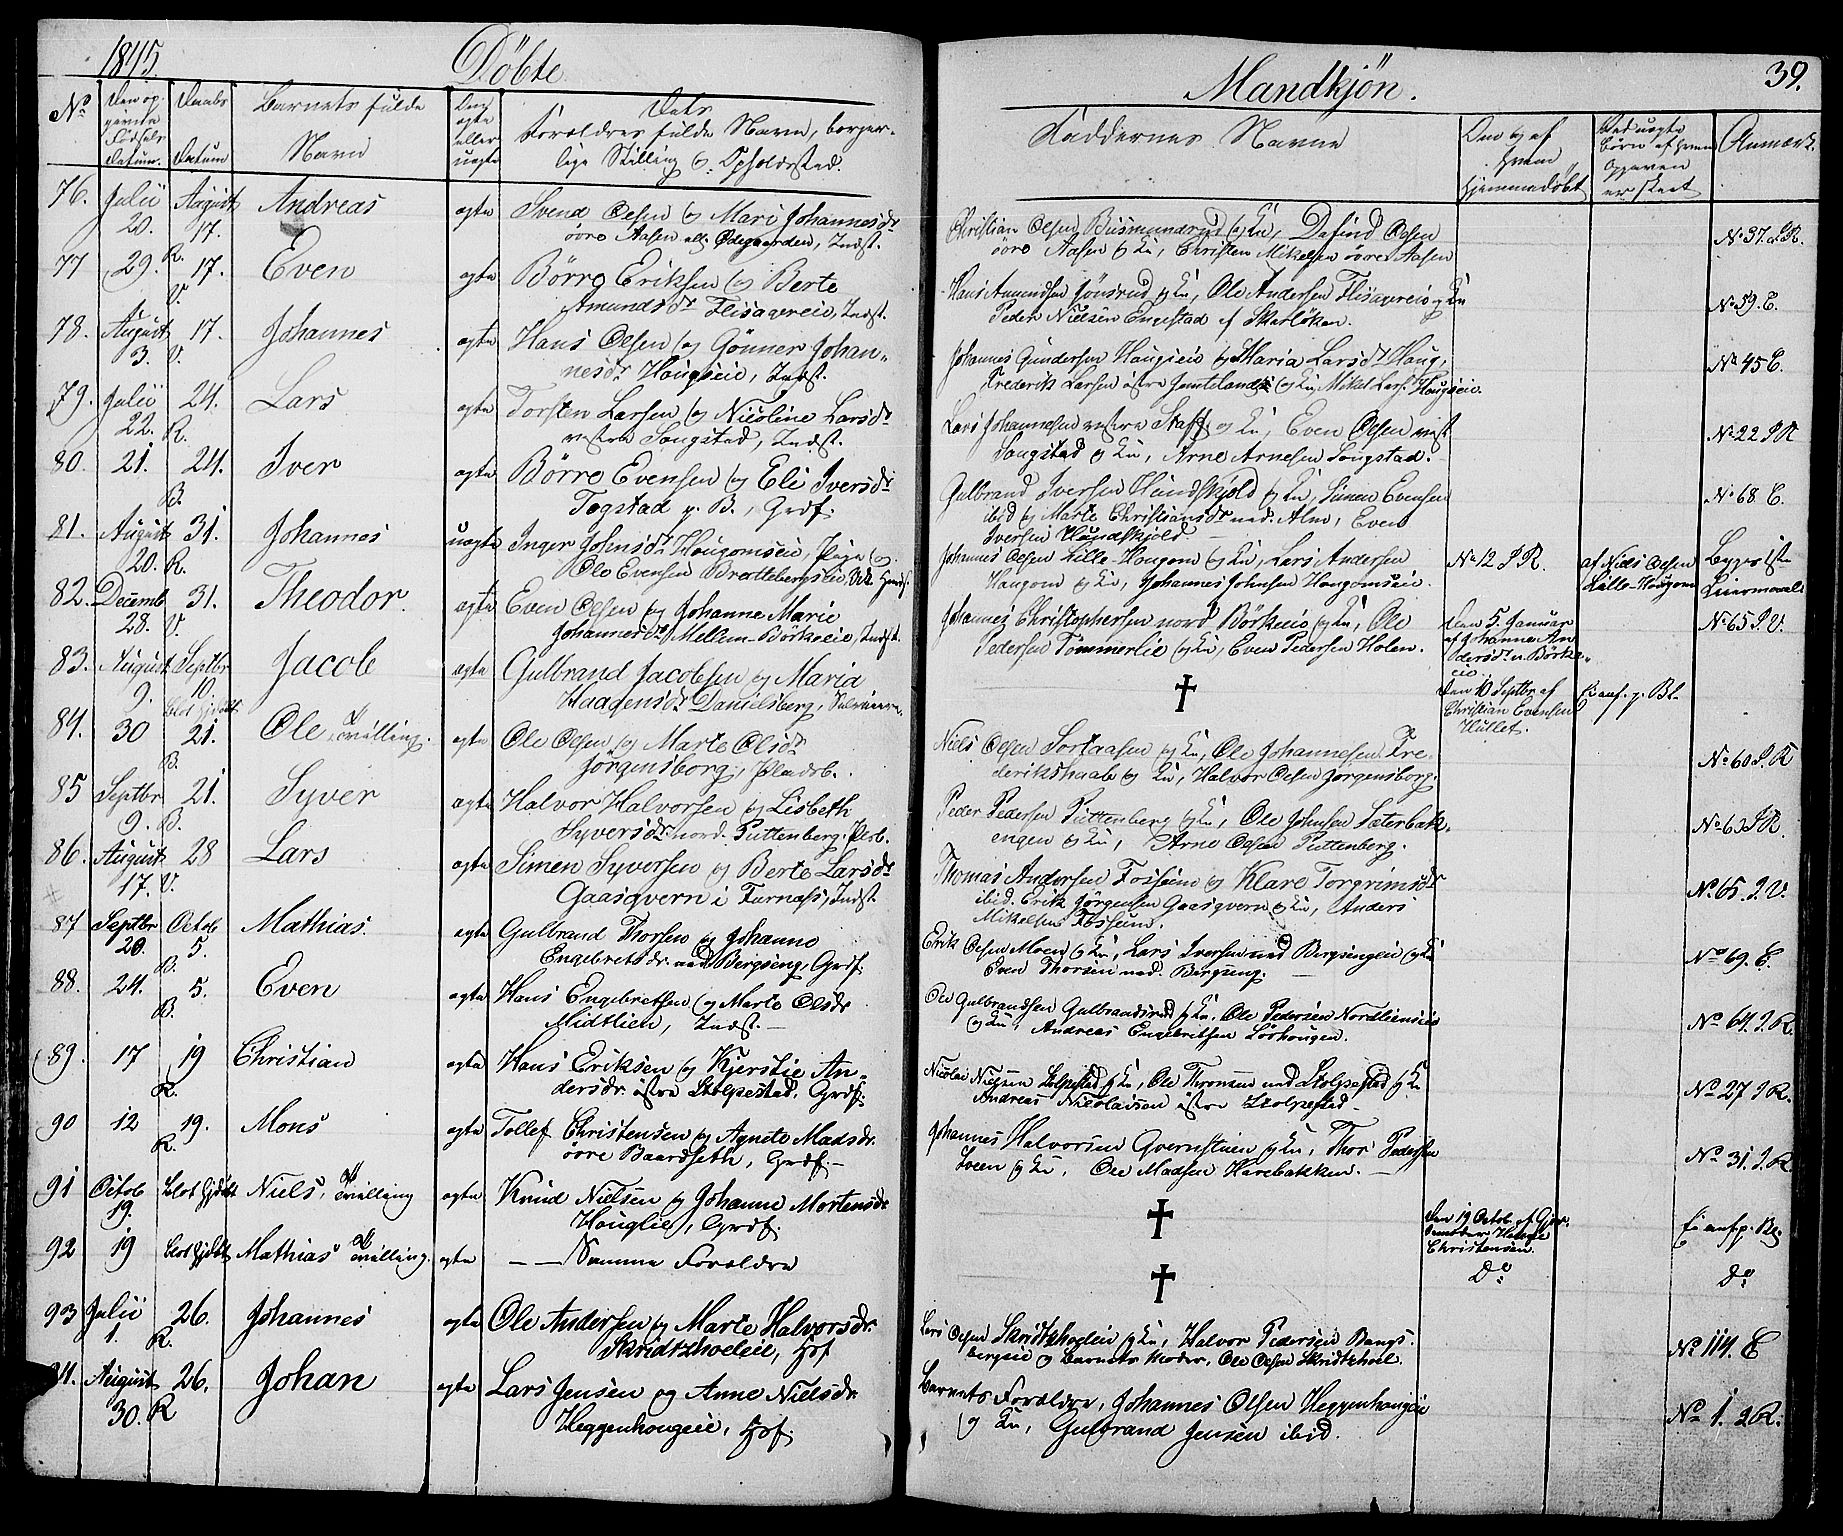 1845.
Döbte
Mandkjön.
39.
No
Den op-
givne
Födsels
Datum.
Daabs
Datum
Barnets fulde
Navn
Om
ægte
eller
uægte
Dets
Forældres fulde Navn, borger-
lige Stilling og Opholdssted.
Faddernes Navne
Om og af
hvem
hjemmedöbt
Ved uægte
Börn af hvem
Opgaven
er skeet
Anmærk.
76. Julii 20. August 17. R. Andreas ægte Svend Olsen og Mari Johannesdr
övre Aasen ell. Ødegaarden, Indst.
Christian Olsen Bismunderud og Ku, Dafind Olsen
övre Aasen og Ku, Christen Mikelsen övre Aasen
No 37. S.R.
77 29. 17. V. Even ægte Börre Eriksen og Berte
Amundsdr Flisagereie, Indst.
Hans Amundsen Jönsrud og Ku, Ole Andersen Flisagereie og Ku
Peder Nielsen Engestad af Skarlöken.
No 59. E.
78. August 3. 17. V. Johannes ægte Hans Olsen og Gönner Johan-
nesdr Haugseie, Indst.
Johannes Gundersen Haugseie og Maria Larsdr Haug,
Frederik Larsen östre Jemteland og Ku, Mikel Lars. Haugseie.
No 45 E.
79. Julii 22. 24. R. Lars ægte Torsten Larsen og Nicoline Larsdr
vestre Songstad, Indst.
Lars Johannesen vestre Staff og Ku, Even Olsen vest
Songstad og Ku, Arne Arnesen Songstad.
No 22 S R
80. 21. 24. B. Iver ægte Börre Evensen og Eli Iversdr
Togstad p. B., Grdf.
Gulbrand Iversen Hundskjold og Ku, Simen Evensen
ibid og Marte Christiansdr ned. Alm, Even
Iversen Hundskjold
No 68 E.
81. August 20. 31. R. Johannes uægte Inger Johnsdr Haugomseie, Pige og
Ole Evensen Brattebergseie,
Johannes Olsen Lille-Haugom og Ku, Lars Andersen
Haugom og Ku, Johannes Johnsen Haugomseie.
No 12 S R.
af Niels Olsen
Lille-Haugom
82. Decemb 28. 31. V. Theodor. ægte Even Olsen og Johanne Marie
Johannesdr Mellem-Börkeeie, Indst.
Johannes Christophersen nord Börkeie og Ku, Ole
Pedersen Tömmerlie og Ku, Even Pedersen Holen.
Den 5. Januar
af Johanne An
dersdr n. Börke-
eie.
No 65 S. V.
83. August 9. Septbr 10. Jacob ægte Gulbrand Jacobsen og Maria
Haagensdr Danielsberg,
✝
Den 10 Septbr af
Christian Evensen
Hullet.
Ei anf. p. Bl.
84. 30 21. B. Ole, Tvilling. ægte Ole Olsen og Marte Olsdr
Jörgensborg, Pladsb.
Niels Olsen Sortaasen og Ku, Ole Johannesen Fre-
derikshaab og Ku, Halvor Olsen Jorgensborg.
No 60 S. R
85 Septbr 9. 21. B. Syver ægte Halvor Halvorsen og Lisbeth
Syversdr nord. Puttenberg. Plsb.
Peder Pedersen Puttenberg og Ku, Ole Johnsen Sæterbak-
engen og Ku, Arne Olsen Puttenberg.
No 63 S R.
86. August 17. 28 V. Lars ægte Simen Syversen og Berte Larsdr
Gaasqvern i Furnæs, Indst.
Thomas Andersen Fossum og Klare Torgrimsdr
ibid. Erik Jörgensen Gaasqvern og Ku, Anders
Mikelsen Fossum.
No 65. S. V.
87 Septbr 20. Octob 5. Mathias. ægte Gulbrand Thorsen og Johanne
Engebretsdr. ned Bergseng, Grdf.
Erik Olsen Moen og Ku, Lars Iversen ned Bergsengeie og Ku
Even Thorsen ned. Bergseng.
No 69. E.
88. 24. 5. B. Even ægte Hans Engebretsen og Marte Olsdr
Midtlien, Indst.
Ole Gulbrandsen Gulbrandsrud og Ku. Ole Pedersen Nordlienseie
og Ku, Andreas Engebretsen Lövhougen.
No 64. S. R.
89. 17 19 R. Christian ægte Hans Eriksen og Kjerstie An-
dersdr. östre Stolpestad, Grdf.
Nicolai Nielsen Stolpestad og Ku, Ole Thronsen ned Stolpestad og Ku
Andreas Nicolaisen östre Stolpestad
No 27 S. R.
90 12 19. R. Mons ægte Tollef Christensen og Agnete Madsdr.
övre Baardseth, Grdf.
Johannes Halvorsen Qvernstuen og Ku, Thor Pedersen
Sveen og Ku, Ole Madsen Herebakken.
No 31. S. R
91 Octob 19. Niels, Tvilling ægte Knud Nielsen og Johanne Mortensdr
Houglie, Grdf.
✝
Den 19 Octob. af
Christensen.
Ei anf p. Bl.
92 19 Mathias Tvilling. ægte — Samme Forældre
✝
Do
Do
93 Julii 1. 26. R. Johannes ægte Ole Andersen og Marte Halvorsdr.
Skridtshoeleie, Hof
Lars Olsen Skridtshogleie og Ku, Halvor Pedersen Bangs-
bergeie og Barnets Moder, Ole Olsen Skridtshoel.
No 114. E
94. August 30. 26. R Johan ægte Lars Jensen og Anne Nielsdr
Heggenhougeie, Hof.
Barnets Forældre, Johannes Olsen Heggenhaugeie
og Ku, Gulbrand Jensen ibid.
No 1. S R.